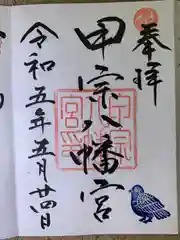 奉拝
甲宗八幡宮
令和五年五月廿四日